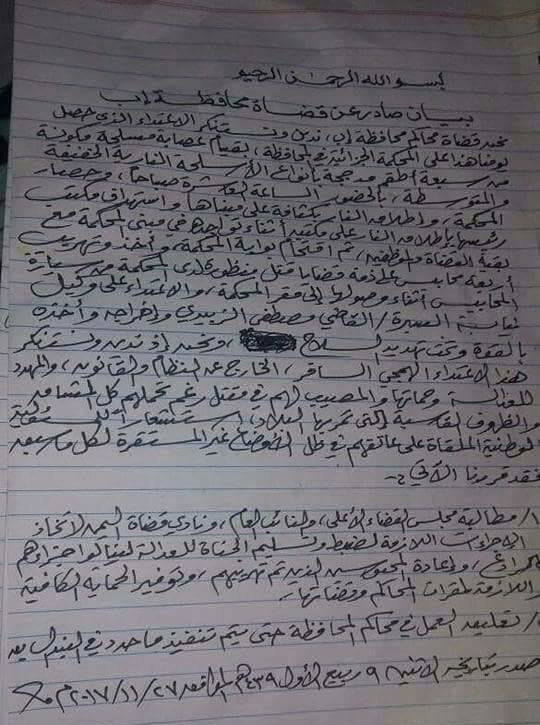 بسم الله الرحمن الرحيم
بيان صادر عن قضاة محافظة إب
نحن قضاة محاكم محافظة إب، ندين ونستنكر الاعتداء الذي حصل
يومنا هذا على المحكمة الجزائية في المحافظة، بقيام عصابة مسلحة مكونة
من سبعة أطقم مدججة بأنواع الأسلحة النارية الخفيفة
والمتوسطة، بالحضور الساعة العاشرة صباحاً، وحصار
المحكمة، وإطلاق النار بكثافة على مبناها واستهداف مكتب
رئيسها بإطلاق النار على مكتبه أثناء تواجده في مبنى المحكمة مع
بقية القضاة والموظفين، ثم اقتحام بوابة المحكمة، وأخذ وتهريب
أربعة محابيس على ذمة قضايا قتل منظورة لدى المحكمة من سيارة
المحابيس أثناء وصولها إلى مقر المحكمة، والاعتداء على وكيل
نيابة السدة/ القاضي مصطفى الزبيدي وإخراجه وأخذه
بالقوة وتحت تهديد السلاح، ونحن إذ ندين ونستنكر
هذا الاعتداء الهمجي السافر، الخارج عن النظام والقانون، والمهدد
للعدالة وحماتها، والمصيب لهم في مقتل رغم تحملهم كل المشاق
والظروف القاسية التي تمر بها البلاد، استشعاراً للمسؤلية
الوطنية الملقاة على عاتقهم في ظل الأوضاع غير المستقرة لكل ما سبق
فقد قررنا الآتي :-
١/ مطالبة مجلس القضاء الأعلى، والنائب العام، ونادي قضاة اليمن لاتخاذ
الإجراءات اللازمة لضبط وتسليم الجناة للعدالة لينالوا جزاءهم
الرادع، وإعادة المحبوسين الذين تم تهريبهم، وتوفير الحماية الكافية
واللازمة لمقرات المحاكم وقضاتها.
/ تعليق العمل في محاكم المحافظة حتى يتم تنفيذ ما حدد في البند السابق
صدر بتاريخ الاثنين ٩ ربيع الأول ١٤٣٩هـ الموافق ٢٧/١١/٢٠١٧م